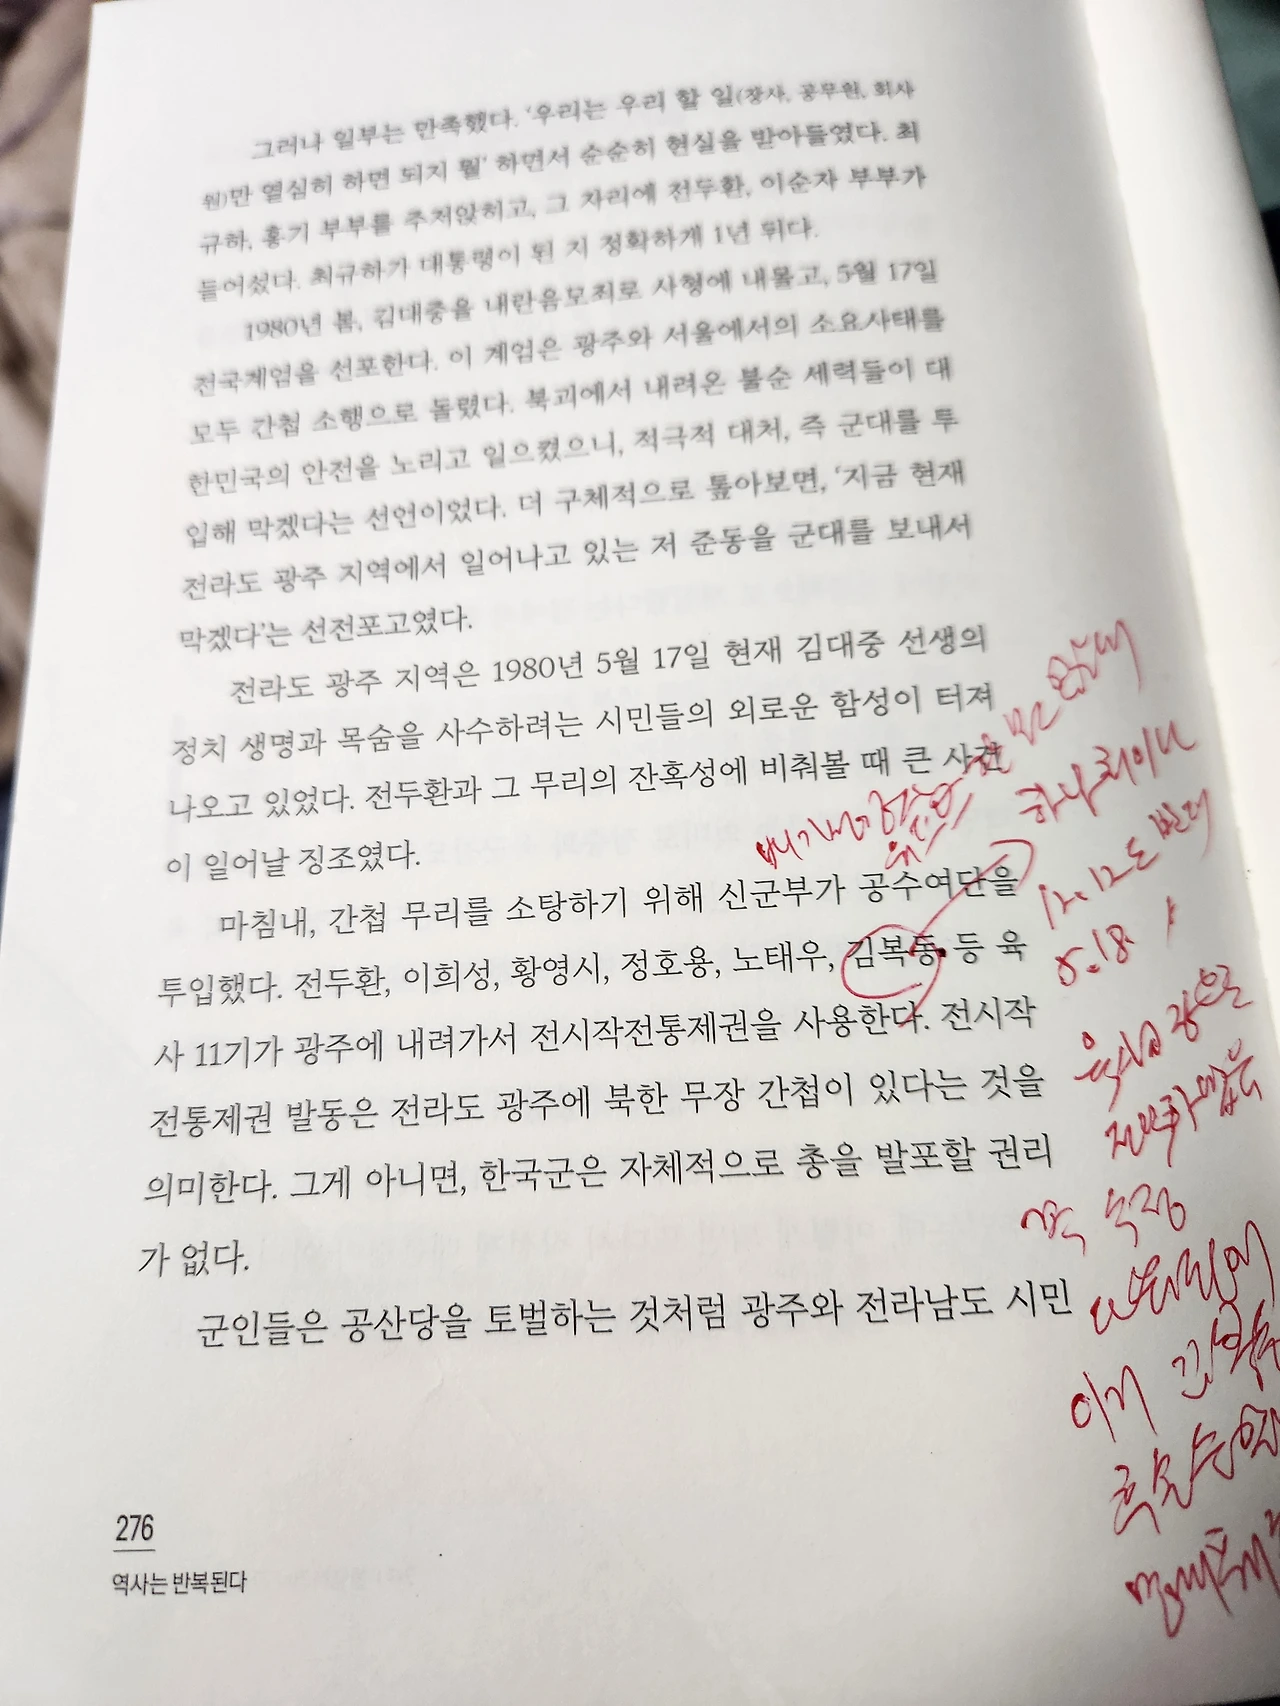 그러나 일부는 만족했다. '우리는 우리 할 일(장사, 공무원, 회사
원)만 열심히 하면 되지 뭘' 하면서 순순히 현실을 받아들였다. 최
규하, 홍기 부부를 주저앉히고, 그 자리에 전두환, 이순자 부부가
들어섰다. 최규하가 대통령이 된 지 정확하게 1년 뒤다.
1980년 봄, 김대중을 내란음모죄로 사형에 내몰고, 5월 17일
전국계엄을 선포한다. 이 계엄은 광주와 서울에서의 소요사태를
모두 간첩 소행으로 돌렸다. 북괴에서 내려온 불순 세력들이 대
한민국의 안전을 노리고 일으켰으니, 적극적 대처, 즉 군대를 투
입해 막겠다는 선언이었다. 더 구체적으로 톺아보면, '지금 현재
전라도 광주 지역에서 일어나고 있는 저 준동을 군대를 보내서
막겠다'는 선전포고였다.
전라도 광주 지역은 1980년 5월 17일 현재 김대중 선생의
정치 생명과 목숨을 사수하려는 시민들의 외로운 함성이 터져
나오고 있었다. 전두환과 그 무리의 잔혹성에 비춰볼 때 큰 사건
이 일어날 징조였다.
마침내, 간첩 무리를 소탕하기 위해 신군부가 공수여단을
투입했다. 전두환, 이희성, 황영시, 정호용, 노태우, 김복동 등 육
사 11기가 광주에 내려가서 전시작전통제권을 사용한다. 전시작
전통제권 발동은 전라도 광주에 북한 무장 간첩이 있다는 것을
의미한다. 그게 아니면, 한국군은 자체적으로 총을 발포할 권리
가 없다.
군인들은 공산당을 토벌하는 것처럼 광주와 전라남도 시민
하나회이나
12.12도 반대
5.18
276
역사는 반복된다